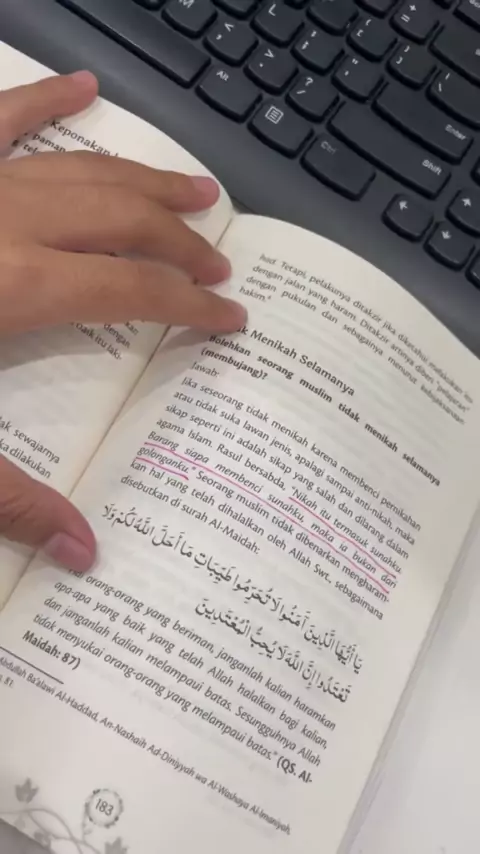 Keponakan
paman
kan
dengan
baik itu laki-
ak sewajarnya
ka dilakukan
had. Tetapi, pelakunya ditakzir jika diketahui melakukan itu
dengan jalan yang haram. Ditakzir artinya diberi "pelajaran"
dengan pukulan dan sebagainya menurut kebijaksanaan
hakim.⁴
ak Menikah Selamanya
Bolehkan seorang muslim tidak menikah selamanya
(membujang)?
Jawab:
Jika seseorang tidak menikah karena membenci pernikahan
atau tidak suka lawan jenis, apalagi sampai anti-nikah, maka
sikap seperti ini adalah sikap yang salah dan dilarang dalam
agama Islam. Rasul bersabda, "Nikah itu termasuk sunahku.
Barang siapa membenci sunahku, maka ia bukan dari
golonganku." Seorang muslim tidak dibenarkan mengharam-
kan hal yang telah dihalalkan oleh Allah Swt., sebagaimana
disebutkan di surah Al-Maidah:
يَا أَيُّهَا الَّذِينَ آمَنُوا لَا تُحَرِّمُوا طَيِّبَاتِ مَا أَحَلَّ اللَّهُ لَكُمْ وَلَا
تَعْتَدُوا إِنَّ اللَّهَ لَا يُحِبُّ الْمُعْتَدِينَ
orang-orang yang beriman, janganlah kalian haramkan
apa-apa yang baik yang telah Allah halalkan bagi kalian,
dan janganlah kalian melampaui batas. Sesungguhnya Allah
tidak menyukai orang-orang yang melampaui batas." (QS. Al-
Maidah: 87)
Abdullah Ba'alawi Al-Haddad, An-Nashaih Ad-Diniyyah wa Al-Washaya Al-Imaniyah,
81.
183
M
<
,
L
>
.
:
;
?
/
"
'
+
=
{
[
}
]
|
\
Alt
Ctrl
Enter
Shift